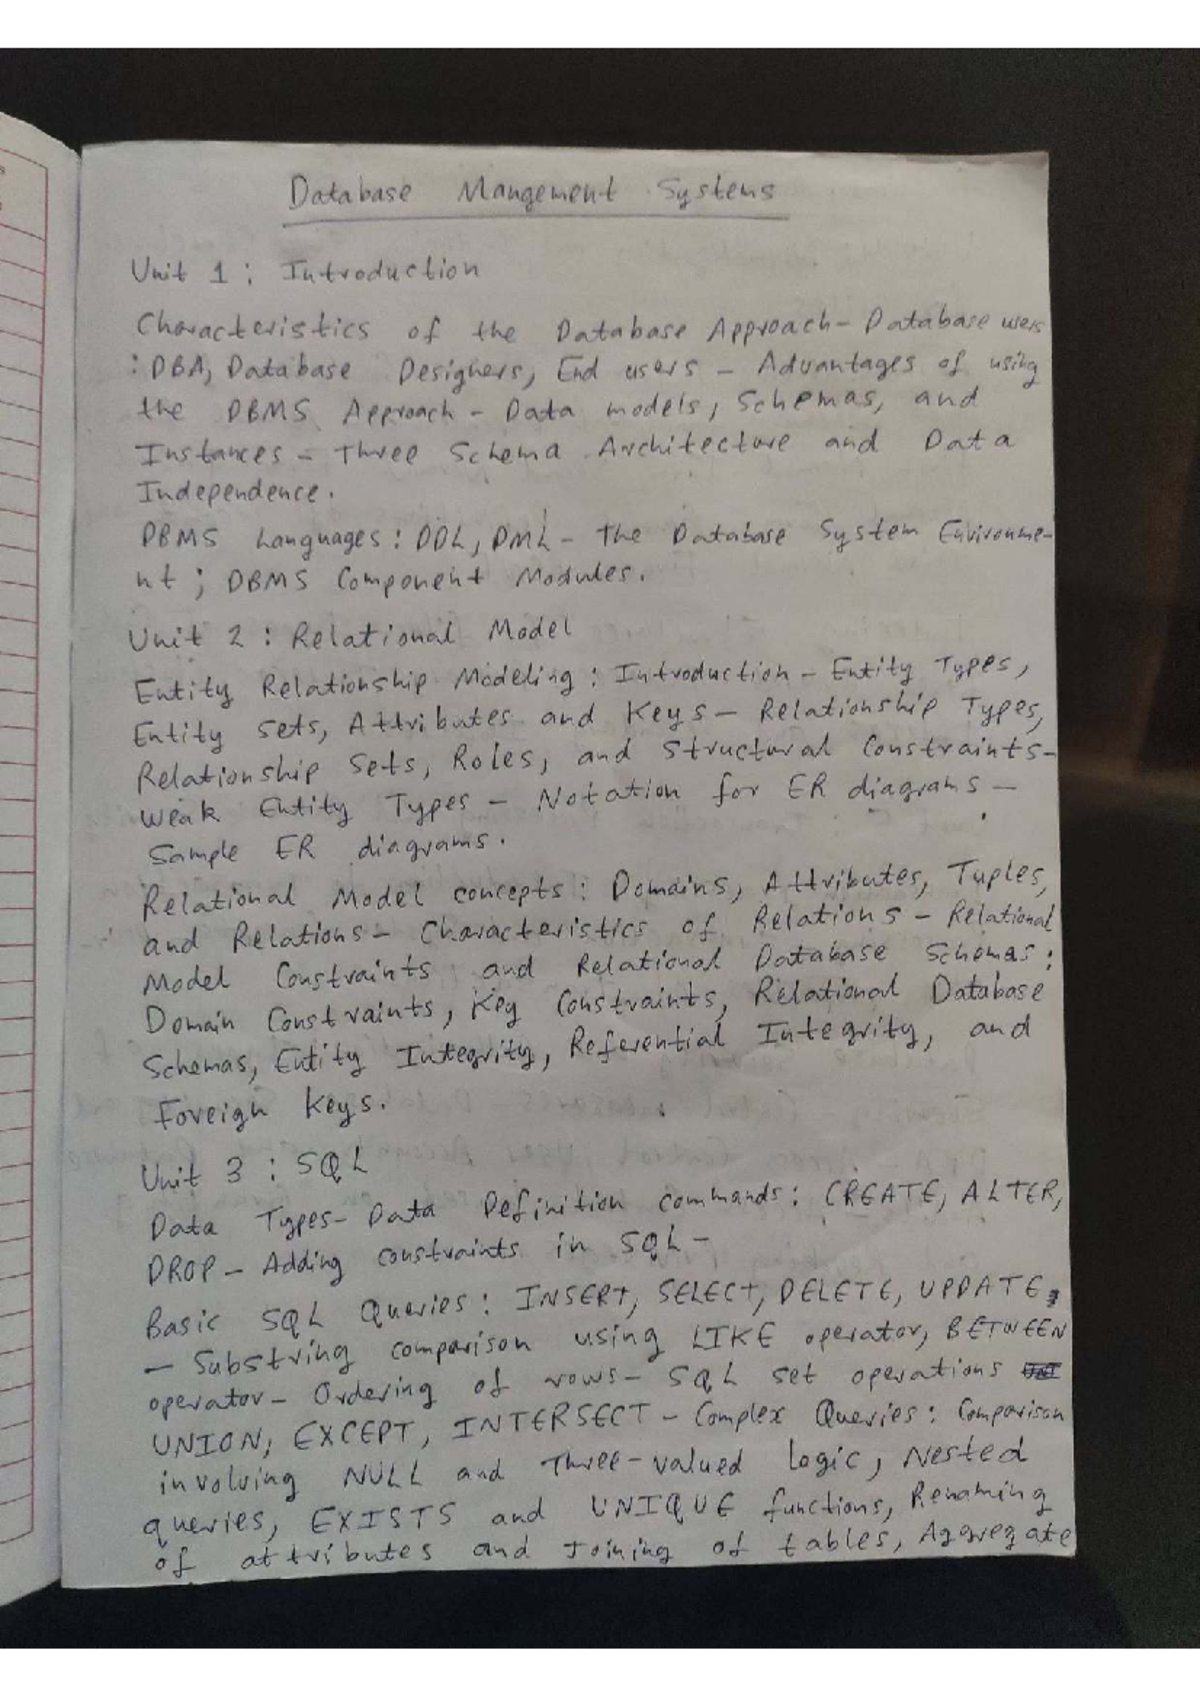 Database Mangement Systems
Unit 1 : Introduction
Characteristics of the Database Approach - Database users
: DBA, Database Designers, End users - Advantages of using
the DBMS Approach - Data models, Schemas, and
Instances - Three Schema Architecture and Data
Independence.
DBMS Languages : DDL, DML - The Database System Environme-
nt ; DBMS Component Modules.
Unit 2 : Relational Model
Entity Relationship Modeling : Introduction - Entity Types,
Entity sets, Attributes and Keys - Relationship Types,
Relationship Sets, Roles, and Structural Constraints-
Weak Entity Types - Notation for ER diagrams -
Sample ER diagrams.
Relational Model concepts : Domains, Attributes, Tuples,
and Relations - Characteristics of Relations - Relational
Model Constraints and Relational Database Schemas :
Domain Constraints, Key Constraints, Relational Database
Schemas, Entity Integrity, Referential Integrity, and
Foreign Keys.
Unit 3 : SQL
Data Types - Data Definition commands : CREATE, ALTER,
DROP - Adding constraints in SQL -
Basic SQL Queries : INSERT, SELECT, DELETE, UPDATE,
- Substring comparison using LIKE operator, BETWEEN
operator - Ordering of rows - SQL set operations
UNION, EXCEPT, INTERSECT - Complex Queries : Comparison
involving NULL and Three-valued logic, Nested
queries, EXISTS and UNIQUE functions, Renaming
of attributes and Joining of tables, Aggregate